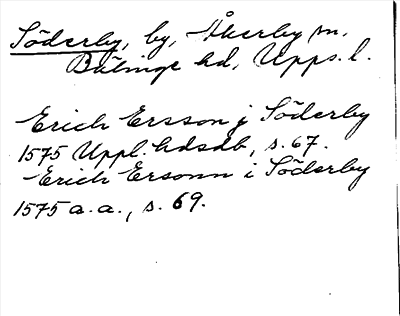 Söderby, by, Åkerby sn,
Bälinge hd, Upps. l.
Erich Ersson j Söderby
1575 Uppl. hdsdb, s. 67.
Erich Ersonn i Söderby
1575 a. a., s. 69.